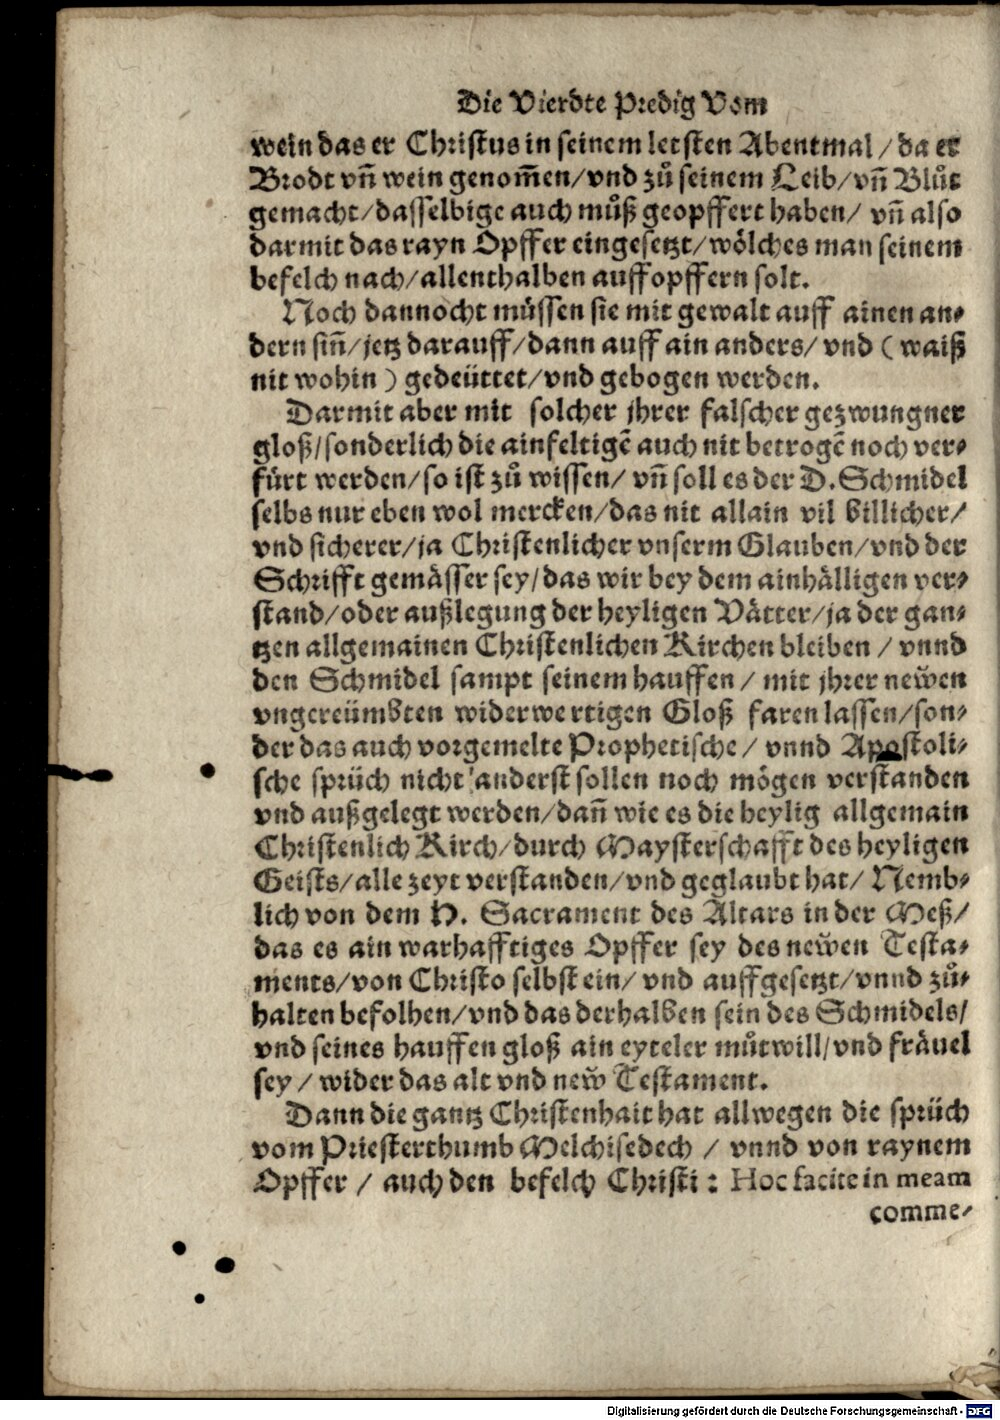 Die Vierdte Predig Vom
wein das er Christus in seinem letsten Abentmal / da er
Brodt vn̄ wein genom̄en/vnd zů seinem Leib/vn̄ Blůt
gemacht/dasselbige auch můß geopffert haben/ vn̄ also
darmit das rayn Opffer eingesetzt/wölches man seinem
befelch nach/allenthalben auffopffern solt.
Noch dannocht müssen sie mit gewalt auff ainen an⸗
dern sin̄/jetz darauff/dann auff ain anders/ vnd ( waiß
nit wohin ) gedeüttet/vnd gebogen werden.
Darmit aber mit solcher jhrer falscher gezwungner
gloß/sonderlich die ainfeltigē auch nit betrogē noch ver⸗
fürt werden/so ist zů wissen/ vn̄ soll es der D. Schmidel
selbs nur eben wol mercken/das nit allain vil billicher/
vnd sicherer/ja Christenlicher vnserm Glauben/vnd der
Schrifft gemässer sey/das wir bey dem ainhälligen ver⸗
stand/oder außlegung der heyligen Vätter/ja der gan⸗
tzen allgemainen Christenlichen Kirchen bleiben / vnnd
den Schmidel sampt seinem hauffen / mit jhrer newen
vngereümbten widerwertigen Gloß faren lassen/son⸗
der das auch vorgemelte Prophetische / vnnd Apostoli⸗
sche sprüch nicht anderst sollen noch mögen verstanden
vnd außgelegt werden/dan̄ wie es die heylig allgemain
Christenlich Kirch/durch Maysterschafft des heyligen
Geists/alle zeyt verstanden/vnd geglaubt hat/ Nemb⸗
lich von dem H. Sacrament des Altars in der Meß/
das es ain warhafftiges Opffer sey des newen Testa⸗
ments/von Christo selbst ein/ vnd auffgesetzt/vnnd zů⸗
halten befolhen/vnd das derhalben sein des Schmidels/
vnd seines hauffen gloß ain eyteler můtwill/vnd fräuel
sey / wider das alt vnd new Testament.
Dann die gantz Christenhait hat allwegen die sprüch
vom Priesterthumb Melchisedech / vnnd von raynem
Opffer / auch den befelch Christi : Hoc facite in meam
comme⸗
Digitalisierung gefördert durch die Deutsche Forschungsgemeinschaft - DFG